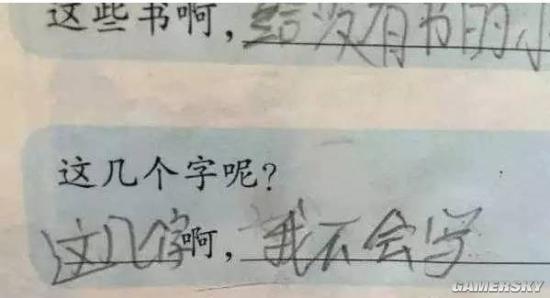 这些书啊，给没有书的小
这几个字呢？
这几个字啊，我不会写
GAMERSKY